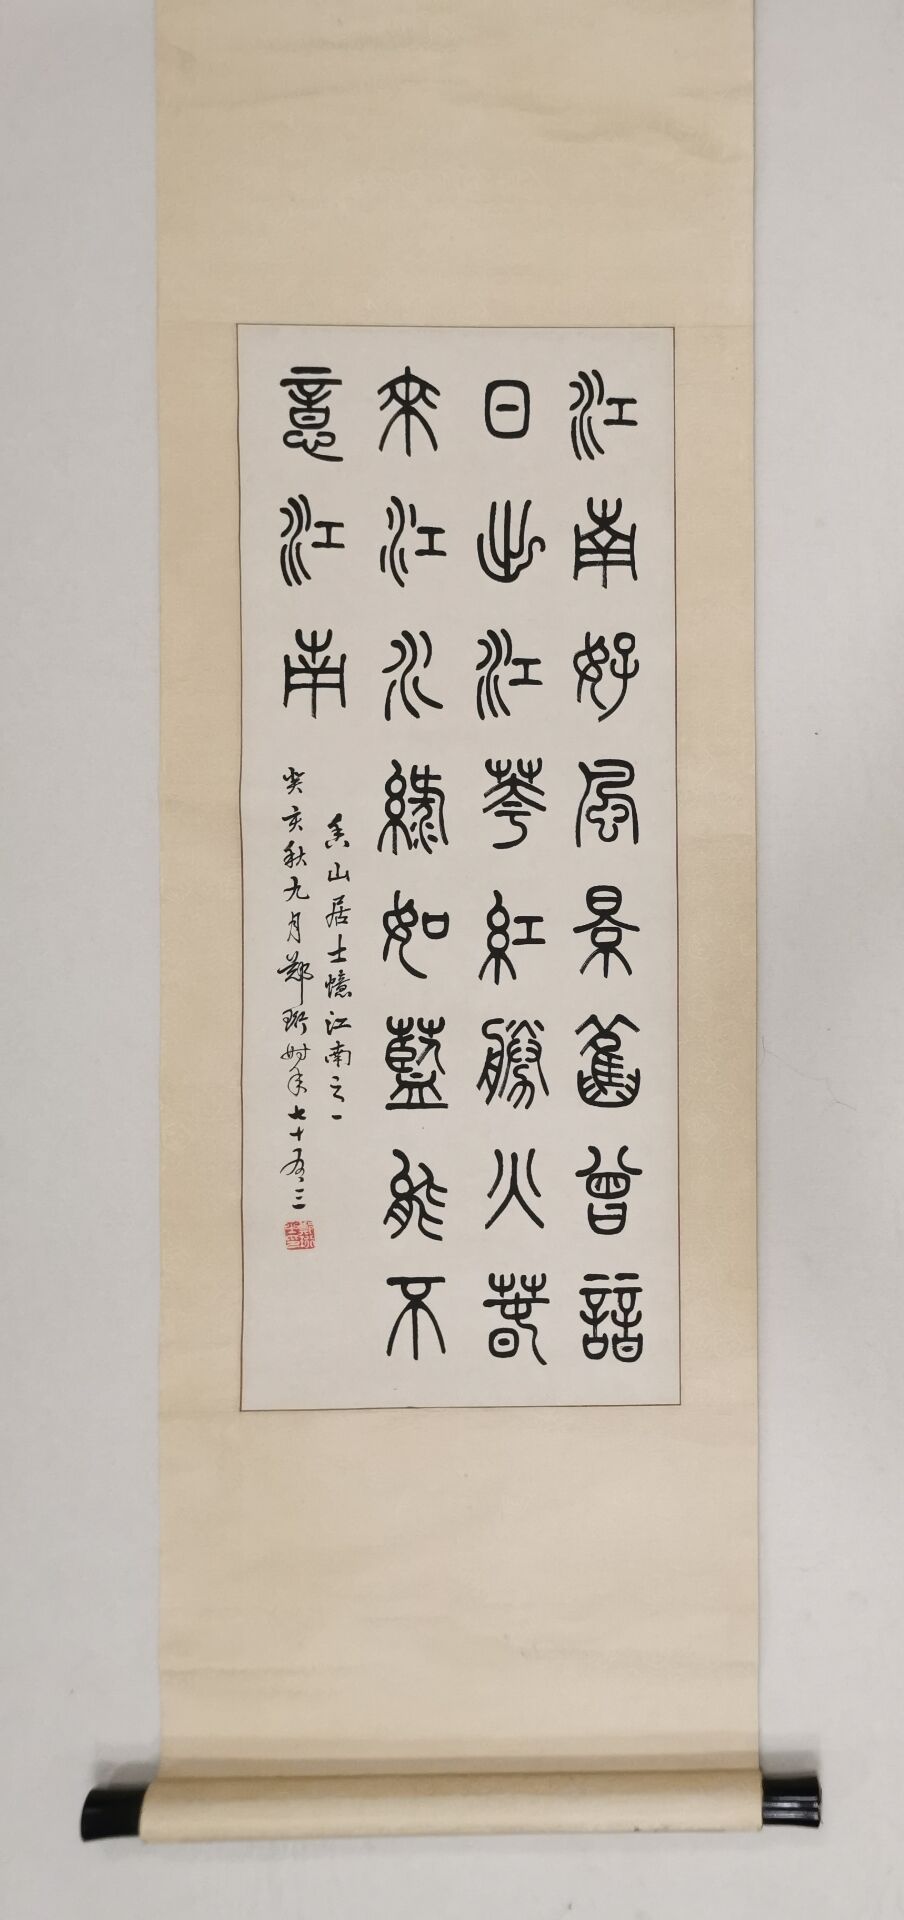 江南好風景舊曾諳
日出江華紅勝火萅
來江水綠如藍能不
意江南
香山居士憶江南之一
癸亥秋九月鄭珩時年七十有三